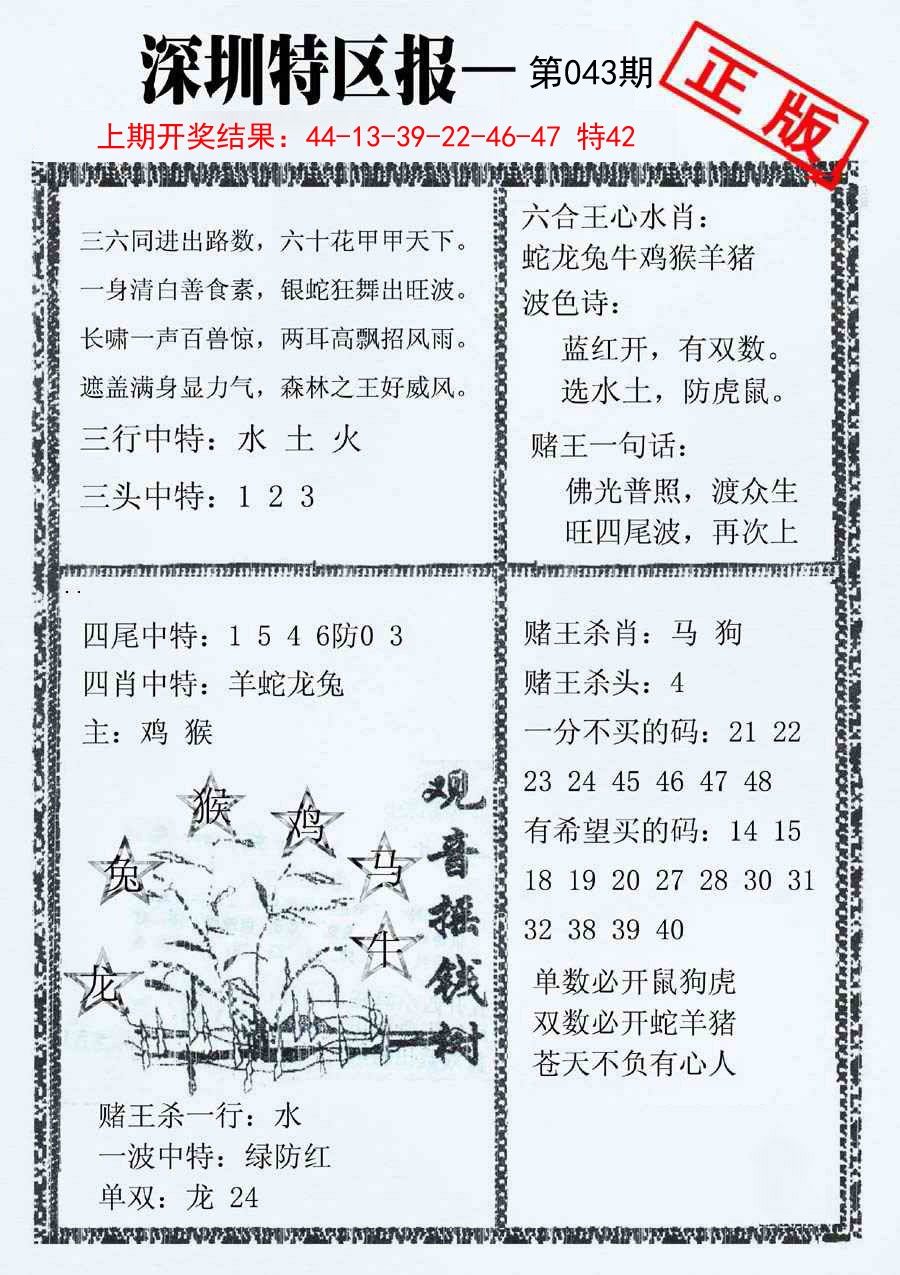 深圳特区报—第043期
正版
上期开奖结果：44-13-39-22-46-47 特42
三六同进出路数，六十花甲甲天下。
一身清白善食素，银蛇狂舞出旺波。
长啸一声百兽惊，两耳高飘招风雨。
遮盖满身显力气，森林之王好威风。
三行中特：水 土 火
三头中特：1 2 3
六合王心水肖：
蛇龙兔牛鸡猴羊猪
波色诗：
蓝红开，有双数。
选水土，防虎鼠。
赌王一句话：
佛光普照，渡众生
旺四尾波，再次上
四尾中特：1 5 4 6防0 3
四肖中特：羊蛇龙兔
主：鸡 猴
猴
鸡
兔
马
牛
龙
观音摇钱树
赌王杀一行：水
一波中特：绿防红
单双：龙 24
赌王杀肖：马 狗
赌王杀头：4
一分不买的码：21 22
23 24 45 46 47 48
有希望买的码：14 15
18 19 20 27 28 30 31
32 38 39 40
单数必开鼠狗虎
双数必开蛇羊猪
苍天不负有心人